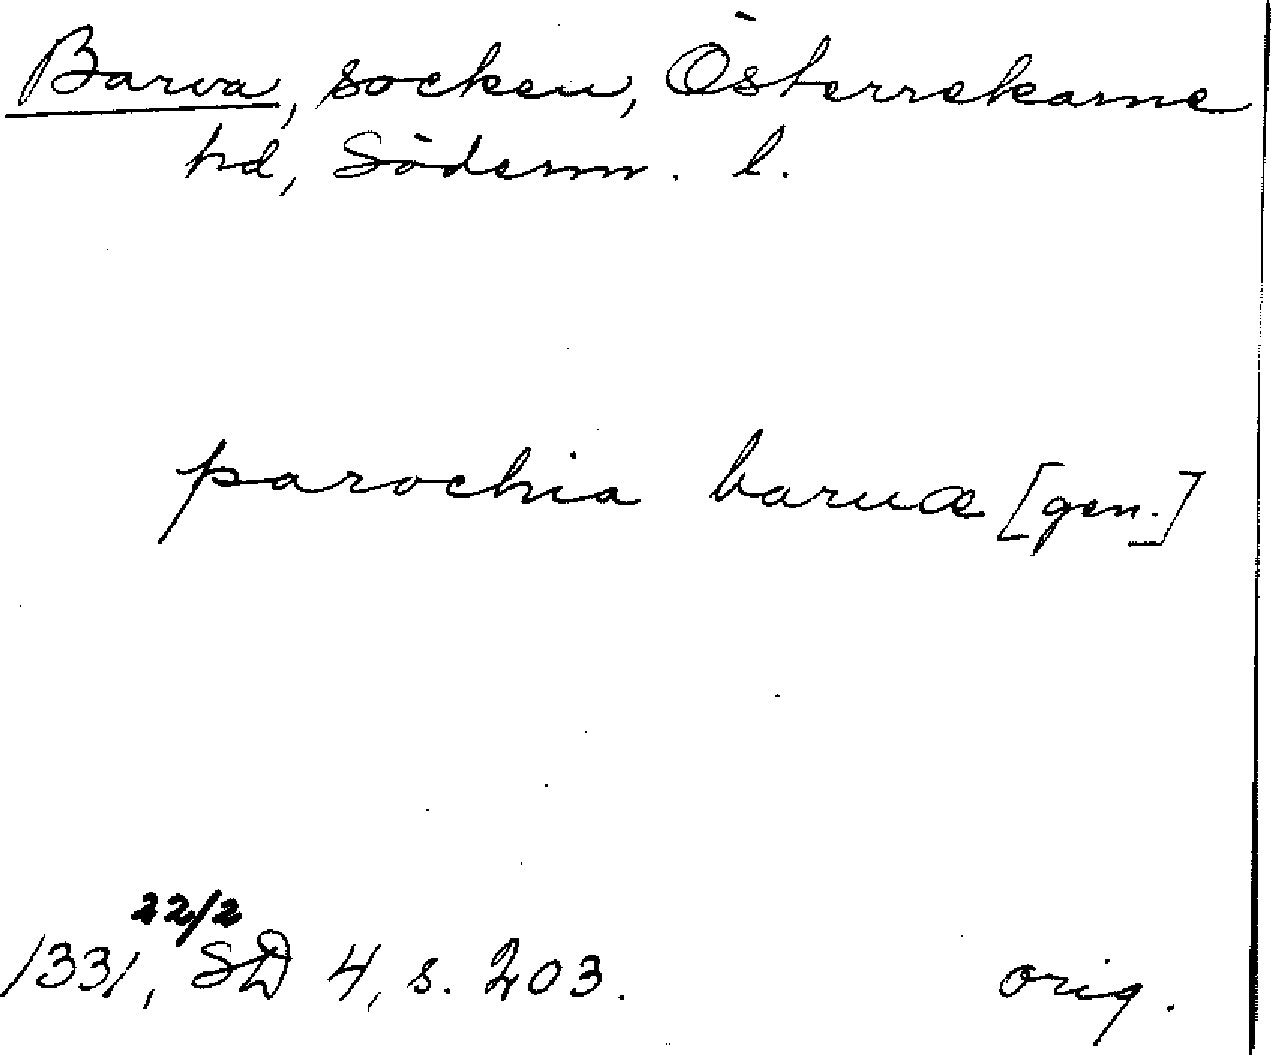 Barva, socken, Österrekarne
hd, Söderm. l.
parochia baruæ [gen.]
22/2
1331, SD 4, s. 203. orig.